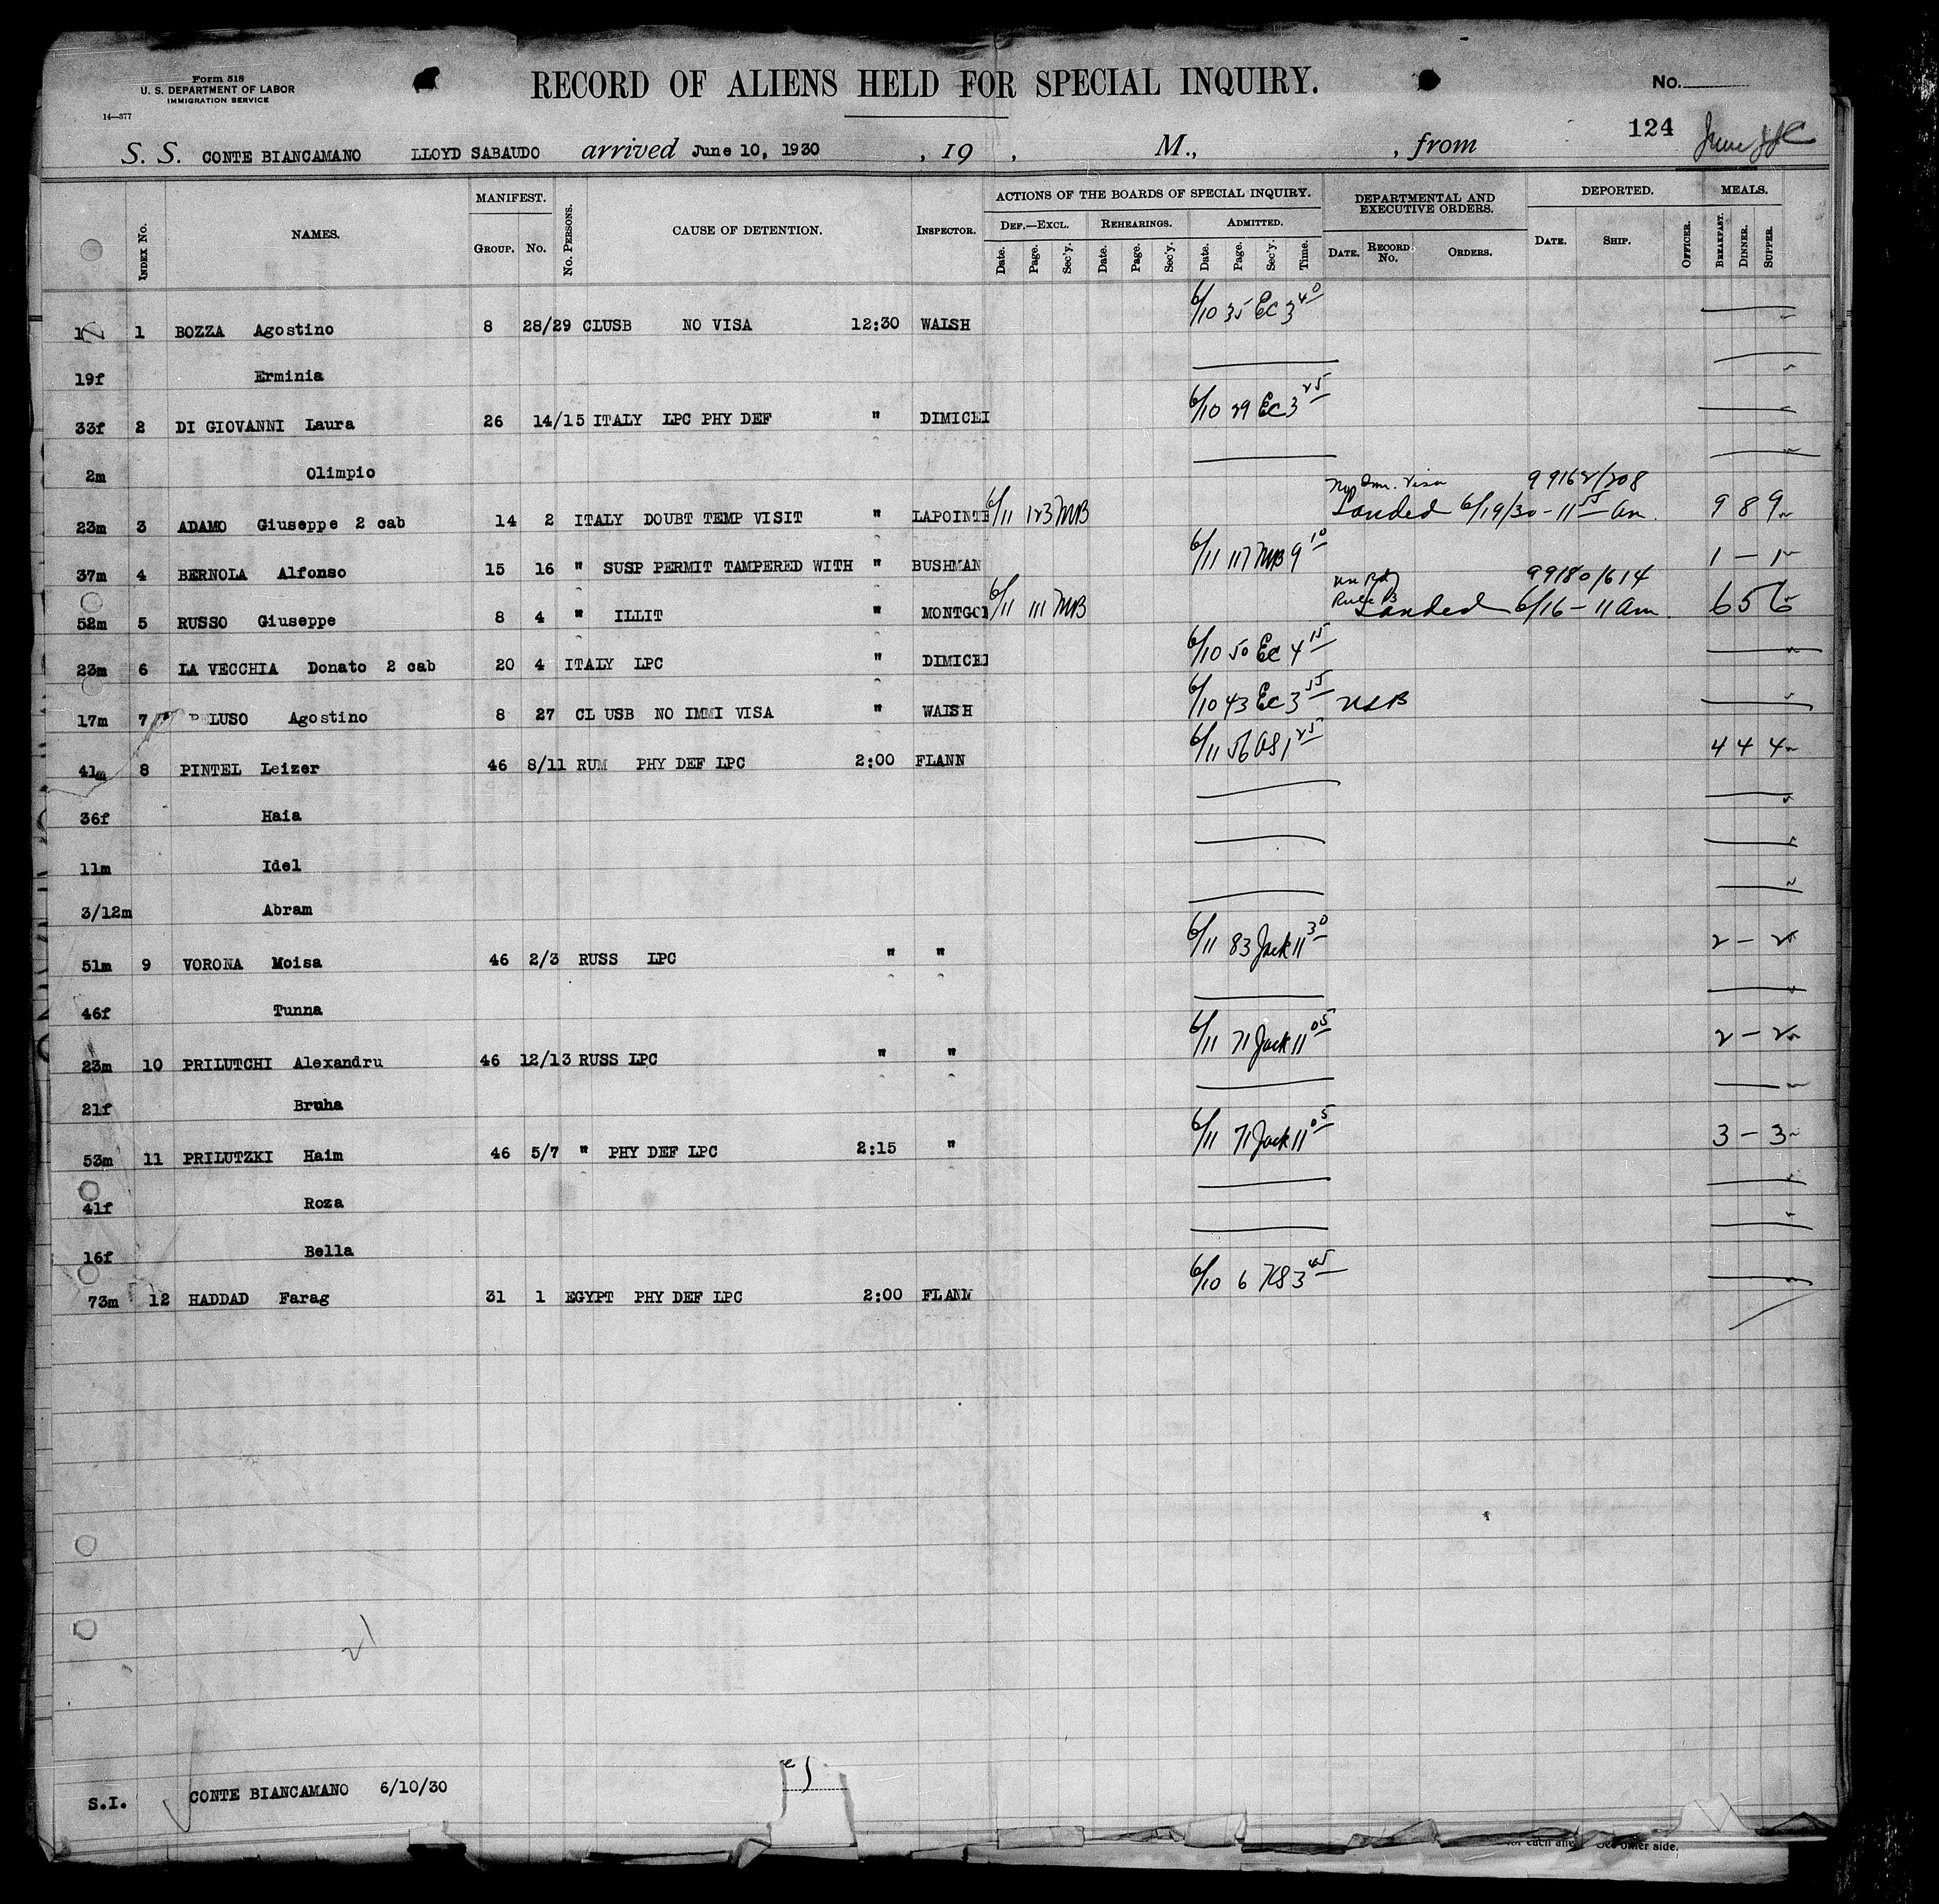 Form 518
U. S. DEPARTMENT OF LABOR
IMMIGRATION SERVICE
14—377
RECORD OF ALIENS HELD FOR SPECIAL INQUIRY.
No.
124
S. S. CONTE BIANCAMANO LLOYD SABAUDO arrived June 10, 1930 , 19 , M., , from
INDEX No. NAMES. MANIFEST. GROUP. No. No. PERSONS. CAUSE OF DETENTION. INSPECTOR. ACTIONS OF THE BOARDS OF SPECIAL INQUIRY. DEF.—EXCL. Date. Page. Sec'y. REHEARINGS. Date. Page. Sec'y. ADMITTED. Date. Page. Sec'y. Time. DEPARTMENTAL AND EXECUTIVE ORDERS. DATE. RECORD No. ORDERS. DEPORTED. DATE. SHIP. OFFICER. MEALS. BREAKFAST. DINNER. SUPPER.
1 BOZZA Agostino 8 28/29 CLUSB NO VISA 12:30 WALSH 6/10 35 EC 3 40
19f Erminia
33f 2 DI GIOVANNI Laura 26 14/15 ITALY LPC PHY DEF " DIMICEI 6/10 29 EC 3 25
2m Olimpio
99162/208
23m 3 ADAMO Giuseppe 2 cab 14 2 ITALY DOUBT TEMP VISIT " LAPOINTE 6/11 123 MB Landed 6/19/30 - 11 15 am. 9 8 9
37m 4 BERNOLA Alfonso 15 16 " SUSP PERMIT TAMPERED WITH " BUSHMAN 6/11 117 MB 9 10 1 – 1
99180/614
52m 5 RUSSO Giuseppe 8 4 " ILLIT " MONTGO 6/11 111 MB Landed 6/16 - 11 am. 6 5 6
23m 6 LA VECCHIA Donato 2 cab 20 4 ITALY LPC " DIMICEI 6/10 50 EC 4 15
17m 7 PELUSO Agostino 8 27 CL USB NO IMMI VISA " WALSH 6/10 43 EC 3 55 USB
41m 8 PINTEL Leizer 46 8/11 RUM PHY DEF LPC 2:00 FLANN 6/11 56 1 25 4 4 4
36f Haia
11m Idel
3/12m Abram
51m 9 VORONA Moisa 46 2/3 RUSS LPC " " 6/11 83 Jack 11 30 2 – 2
46f Tunna
23m 10 PRILUTCHI Alexandru 46 12/13 RUSS LPC " " 6/11 71 Jack 11 05 2 – 2
21f Bruha
53m 11 PRILUTZKI Haim 46 5/7 " PHY DEF LPC 2:15 " 6/11 71 Jack 11 05 3 – 3
41f Roza
16f Bella
73m 12 HADDAD Farag 31 1 EGYPT PHY DEF LPC 2:00 FLANN 6/10 6 KS 3 45
21
S.I. CONTE BIANCAMANO 6/10/30
other side.